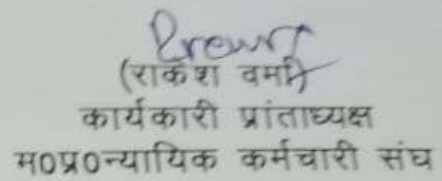 (राकेश वर्मा)
कार्यकारी प्रांताध्यक्ष
म0प्र0न्यायिक कर्मचारी संघ